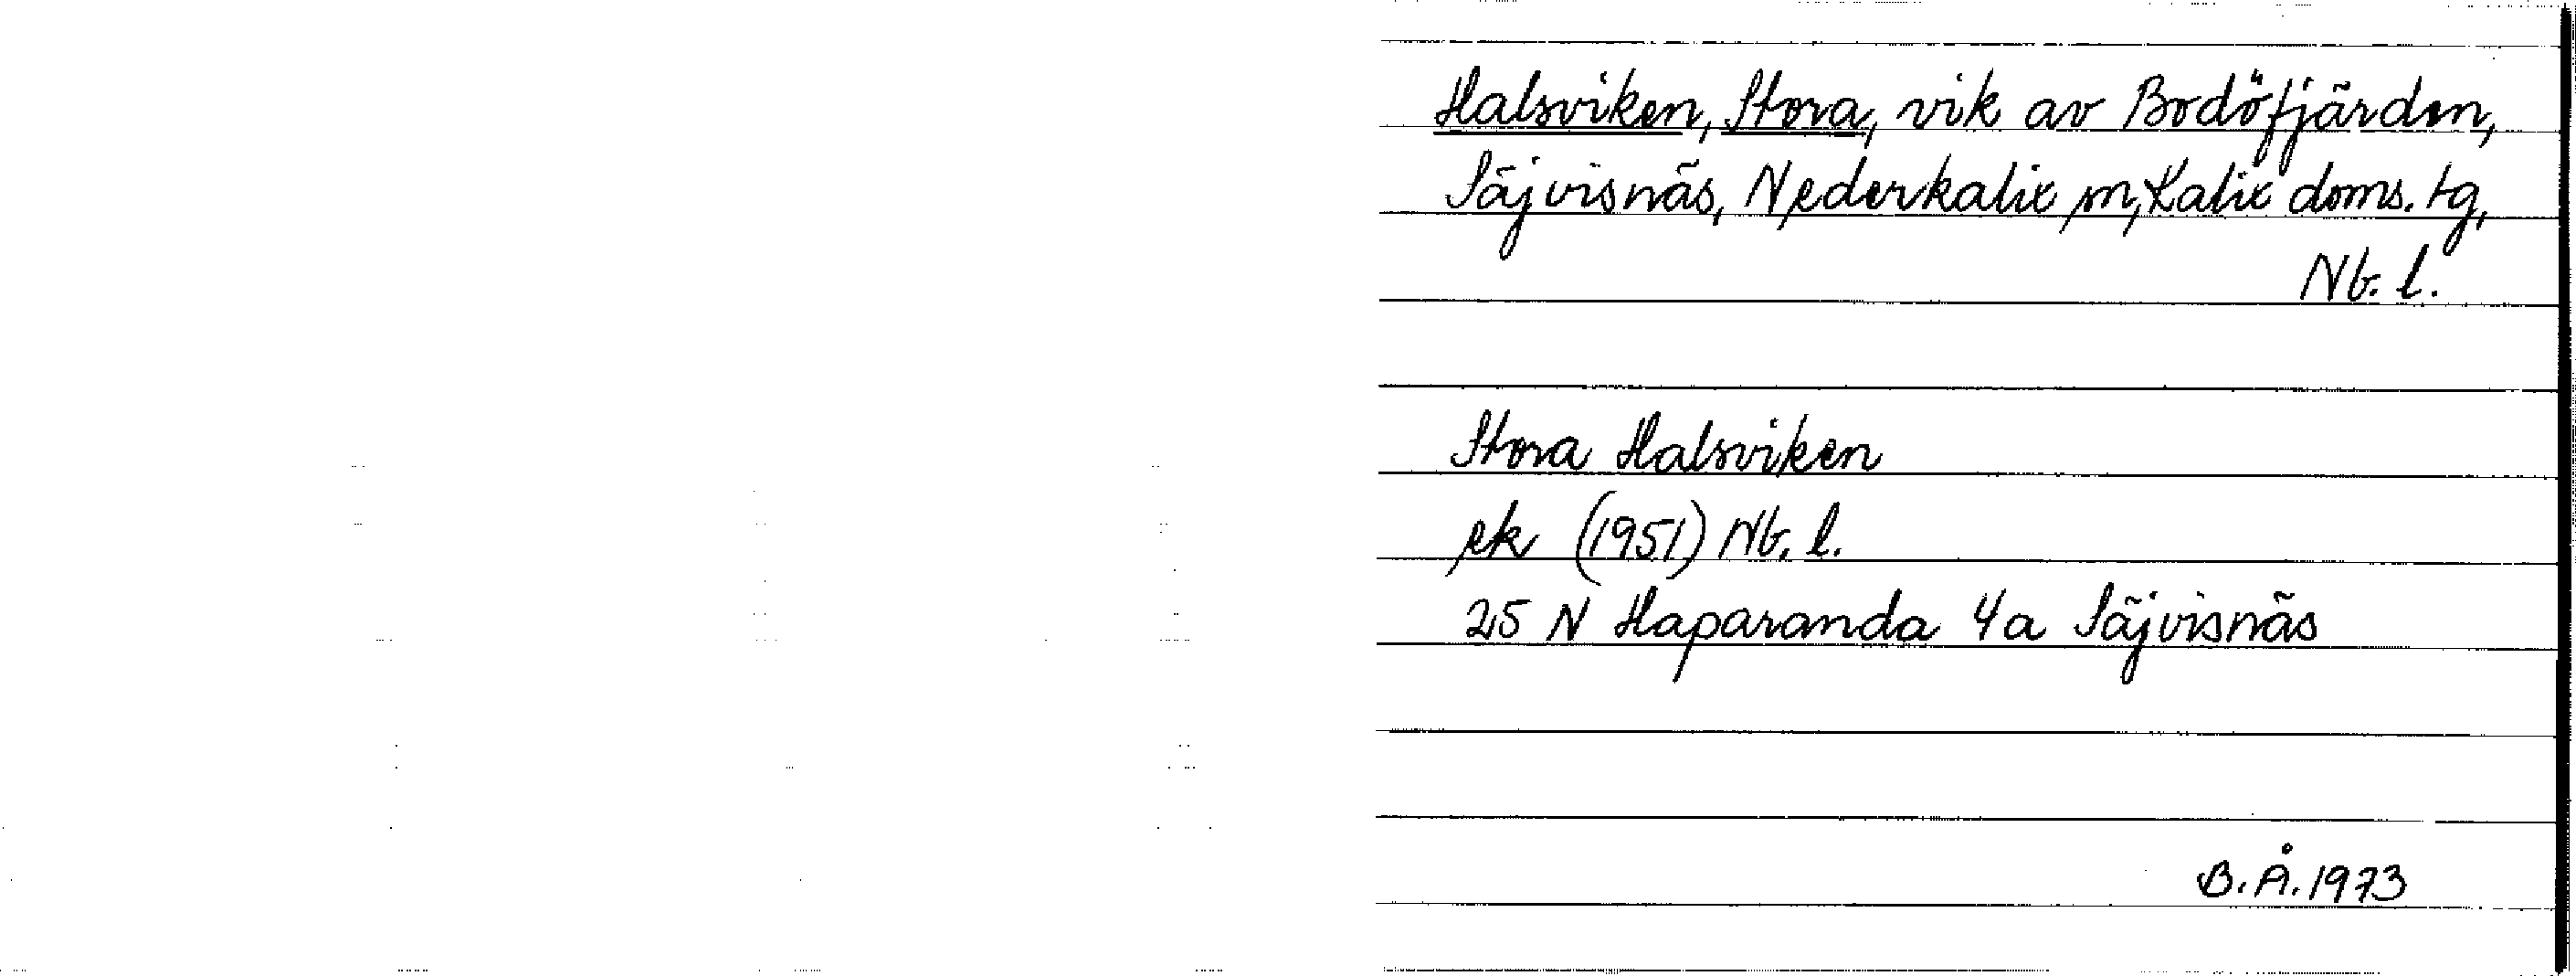 Halsviken, Stora, vik av Bodöfjärden,
Säjvisnäs, Nederkalix sn, Kalix doms. tg,
Nb. l.
Stora Halsviken
ek (1951) Nb. l.
25 N Haparanda 4a Säjvisnäs
B.Å. 1973